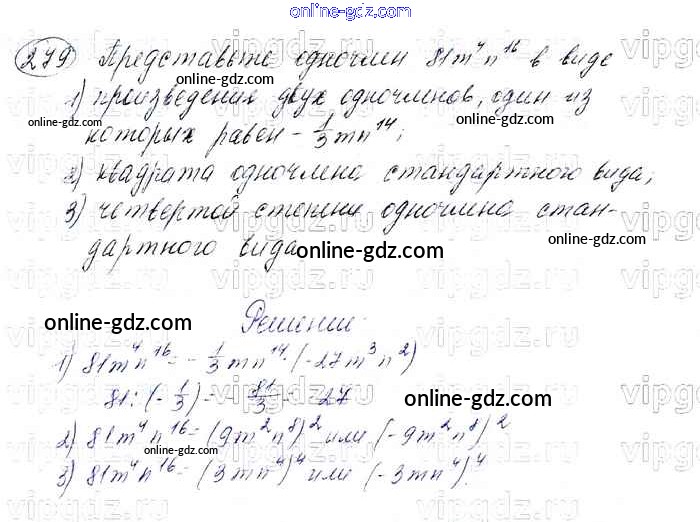 online-gdz.com
279 Представьте одночлен 81m⁴n¹⁶ в виде
online-gdz.com
1) произведения двух одночленов, один из
которых равен - 1/3 mn¹⁴;
online-gdz.com
online-gdz.com
2) квадрата одночлена стандартного вида;
3) четвертой степени одночлена стан-
дартного вида.
online-gdz.com
online-gdz.com
Решение.
online-gdz.com
1) 81m⁴n¹⁶ = - 1/3 mn¹⁴ · (-27m³n²)
81 : (- 1/3) = - 81/3 = - 27
online-gdz.com
2) 81m⁴n¹⁶ = (9m²n⁸)² или (-9m²n⁸)²
online-gdz.com
3) 81m⁴n¹⁶ = (3mn⁴)⁴ или (-3mn⁴)⁴.
online-gdz.com